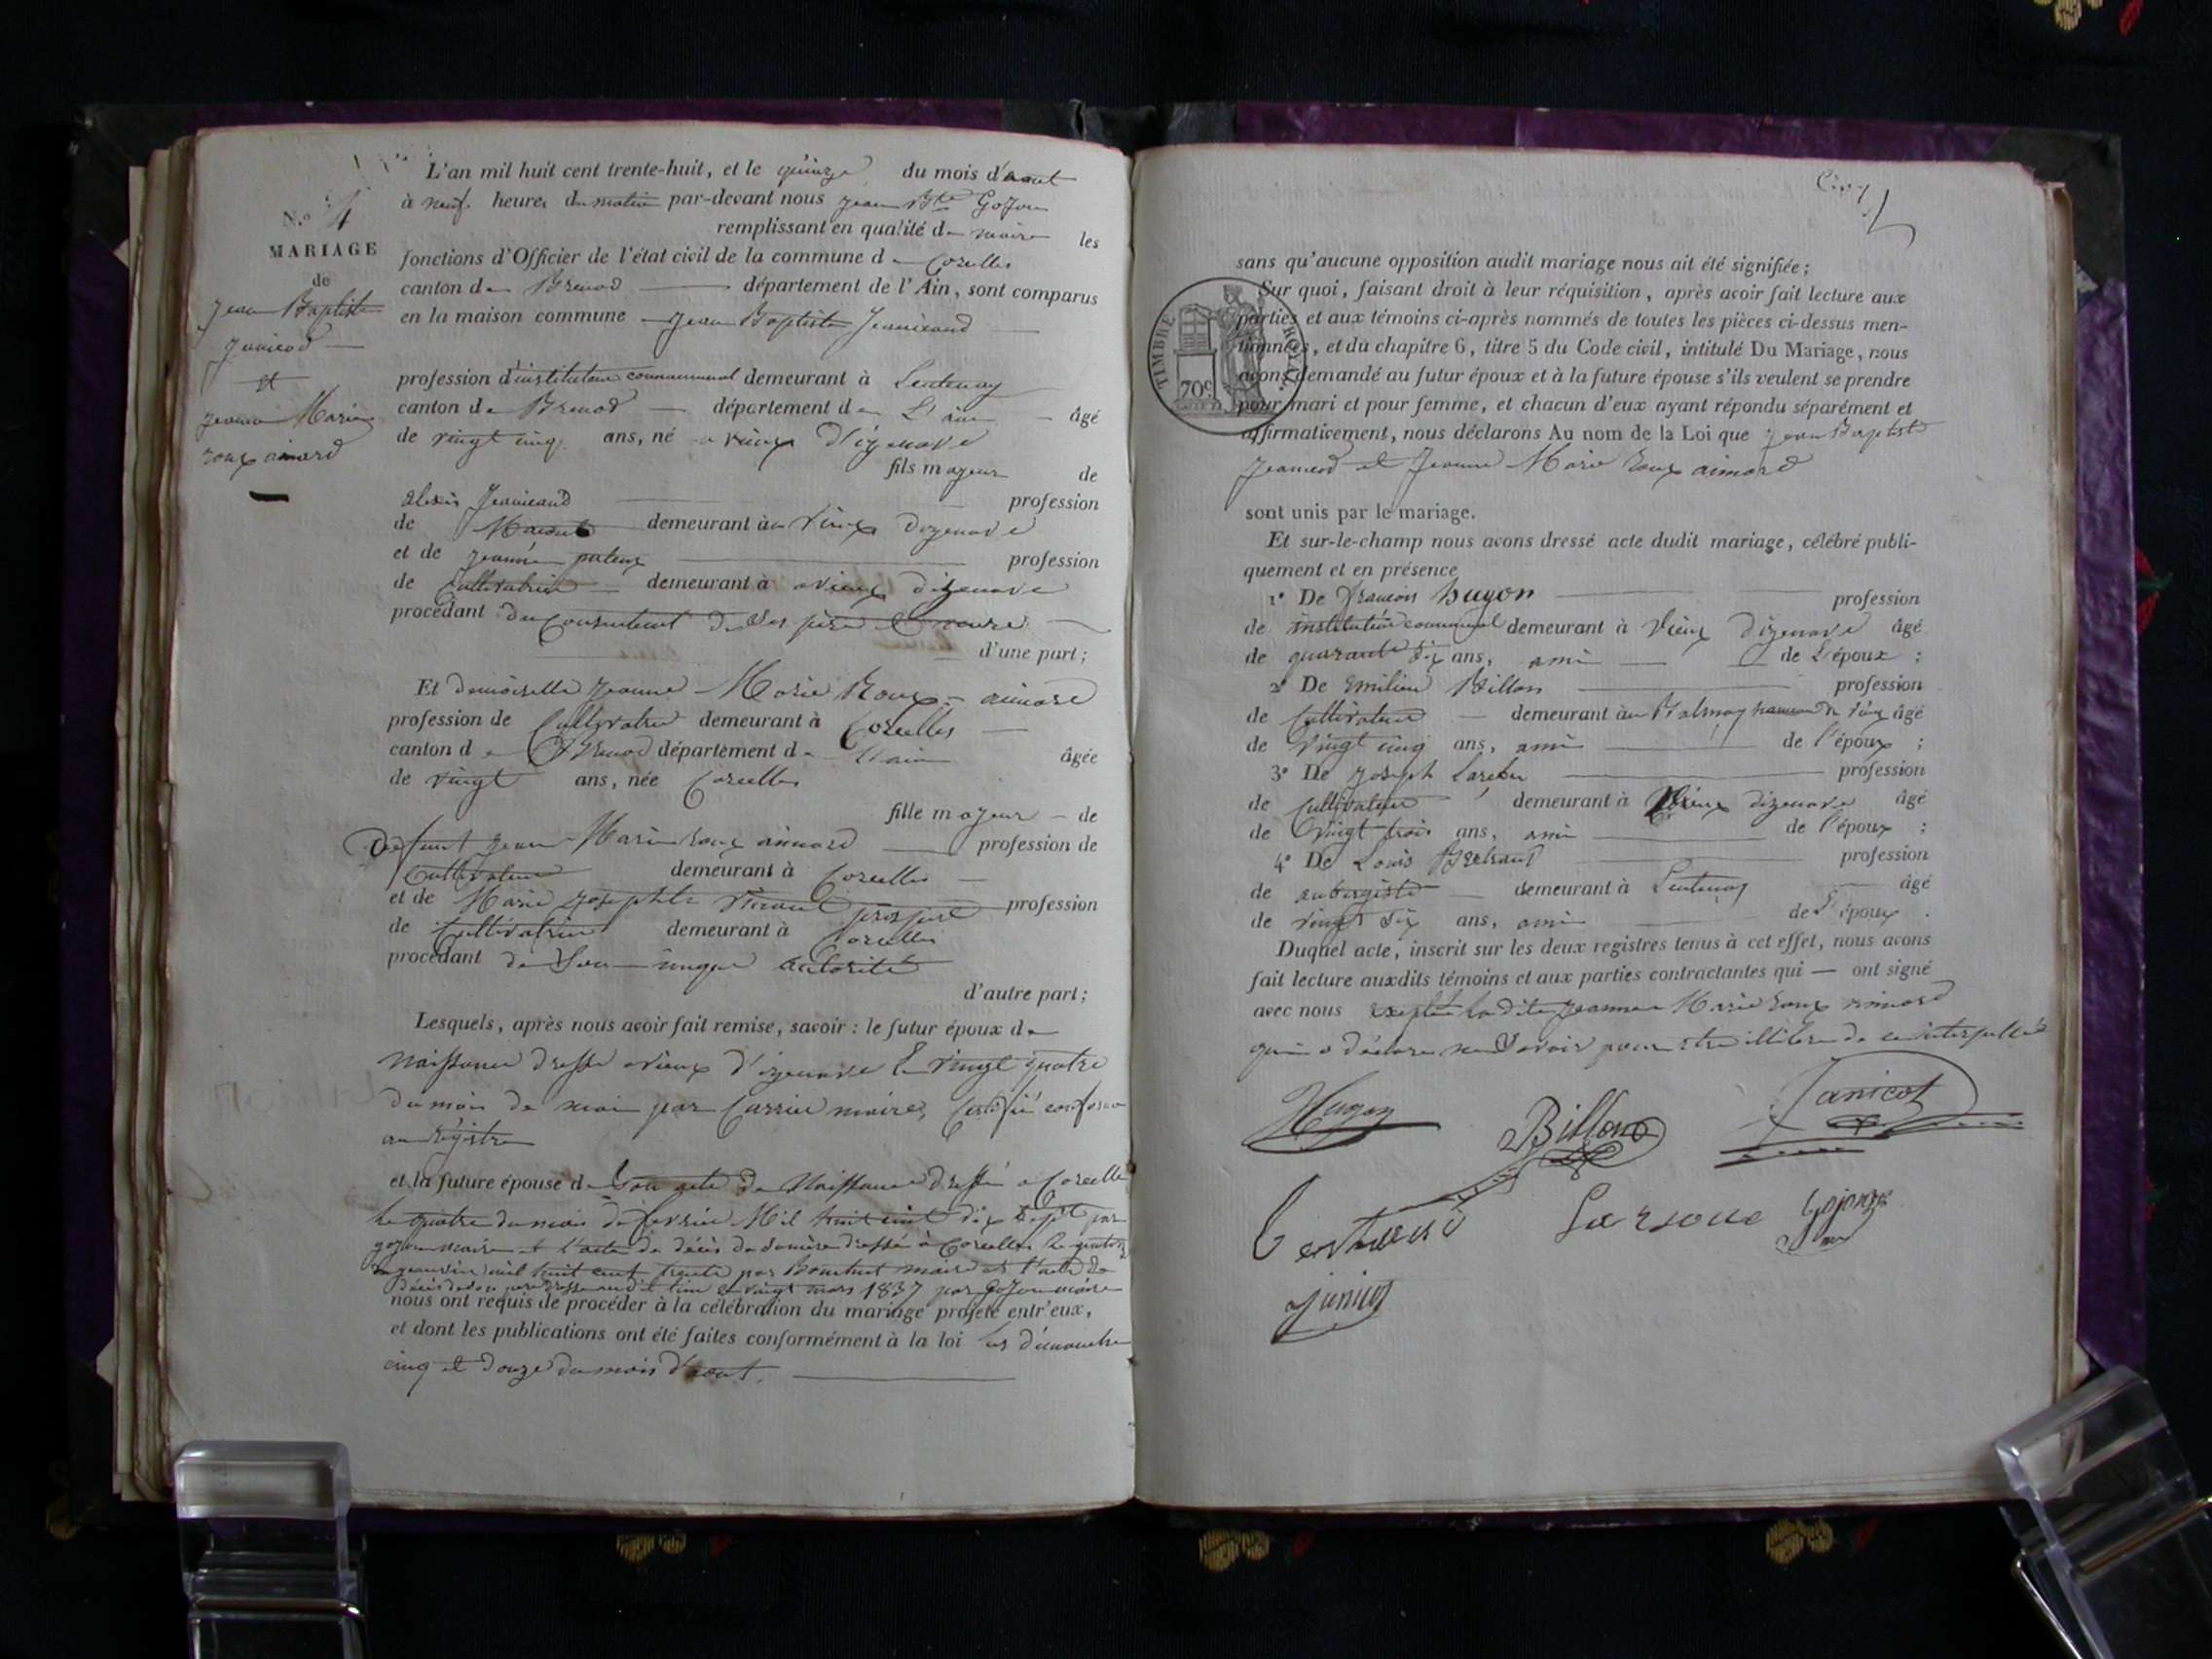 L'an mil huit cent trente-huit, et le quinze du mois d'aout
à neuf heures du matin par-devant nous jean Bte Gojon
remplissant en qualité de maire les
fonctions d'Officier de l'état civil de la commune de Corcelles
canton de Brenod département de l'Ain, sont comparus
en la maison commune Jean Baptiste Jeanicaud
N.o 4
MARIAGE
de
Jean Baptiste
et
jeanne Marie
roux aimard
profession d'instituteur communal demeurant à Lentenay
canton de Brenod département de L'ain âgé
de vingt cinq ans, né a vieux d'izenave
fils majeur de
alexis Jeanicaud profession
de demeurant à vieux dizenave
et de profession
de Cultivatrice demeurant à vieux dizenave
procédant du Consentement de ses père et mere
d'une part;
Et demoiselle Jeanne Marie Roux aimard
profession de Cultivatrice demeurant à Corcelles
canton de Brenod département de L'ain âgée
de vingt ans, née Corcelles
fille majeur de
Defunt jean Marie roux aimard profession de
Cultivateur demeurant à Corcelles
et de Marie josephte profession
de Cultivatrice demeurant à Corcelles
procédant de Son unique autorité
d'autre part;
Lesquels, après nous avoir fait remise, savoir: le futur époux de
Naissance dressé a vieux d'izenave le vingt quatre
du mois de mai par Carrier maire, Certifié conforme
au régistre
et la future épouse de Son acte de Naissance dressé a Corcelle
le quatre du mois de fevrier Mil huit cent dix sept par
gojon maire et l'acte de décès de dressé à Corcelles le
mil huit cent trente par maire et l'acte de
décès de son pere dressé audit lieu le vingt mars 1837 par Gojon maire
nous ont requis de procéder à la célébration du mariage projeté entr'eux,
et dont les publications ont été faites conformément à la loi les dimanche
cinq et douze du mois d'aout.
Cinq
sans qu'aucune opposition audit mariage nous ait été signifiée;
Sur quoi, faisant droit à leur réquisition, après avoir fait lecture aux
parties et aux témoins ci-après nommés de toutes les pièces ci-dessus men-
tionnées, et du chapitre 6, titre 5 du Code civil, intitulé Du Mariage, nous
avons demandé au futur époux et à la future épouse s'ils veulent se prendre
pour mari et pour femme, et chacun d'eux ayant répondu séparément et
affirmativement, nous déclarons Au nom de la Loi que jean Baptiste
Jeanicod et Jeanne Marie roux aimard
TIMBRE ROYAL
70c
sont unis par le mariage.
Et sur-le-champ nous avons dressé acte dudit mariage, célébré publi-
quement et en présence
1° De francois hugon profession
de instituteur communal demeurant à Vieux dizenave âgé
de quarante six ans, ami de L'époux;
2° De Emilien Billon profession
de Cultivateur demeurant au Balmay hameau de vieux âgé
de vingt cinq ans, ami de l'époux;
3° De joseph profession
de Cultivateur demeurant à Vieux dizenave âgé
de vingt trois ans, ami de l'époux;
4° De Louis profession
de aubergiste demeurant à Lentenay âgé
de vingt six ans, ami de l'époux.
Duquel acte, inscrit sur les deux registres tenus à cet effet, nous avons
fait lecture auxdits témoins et aux parties contractantes qui — ont signé
avec nous excepté Ladite jeanne Marie roux aimard
qui a déclaré ne Savoir pour etre illitere de ce interpellée
Hugon
Billon
Janicot
Gojon